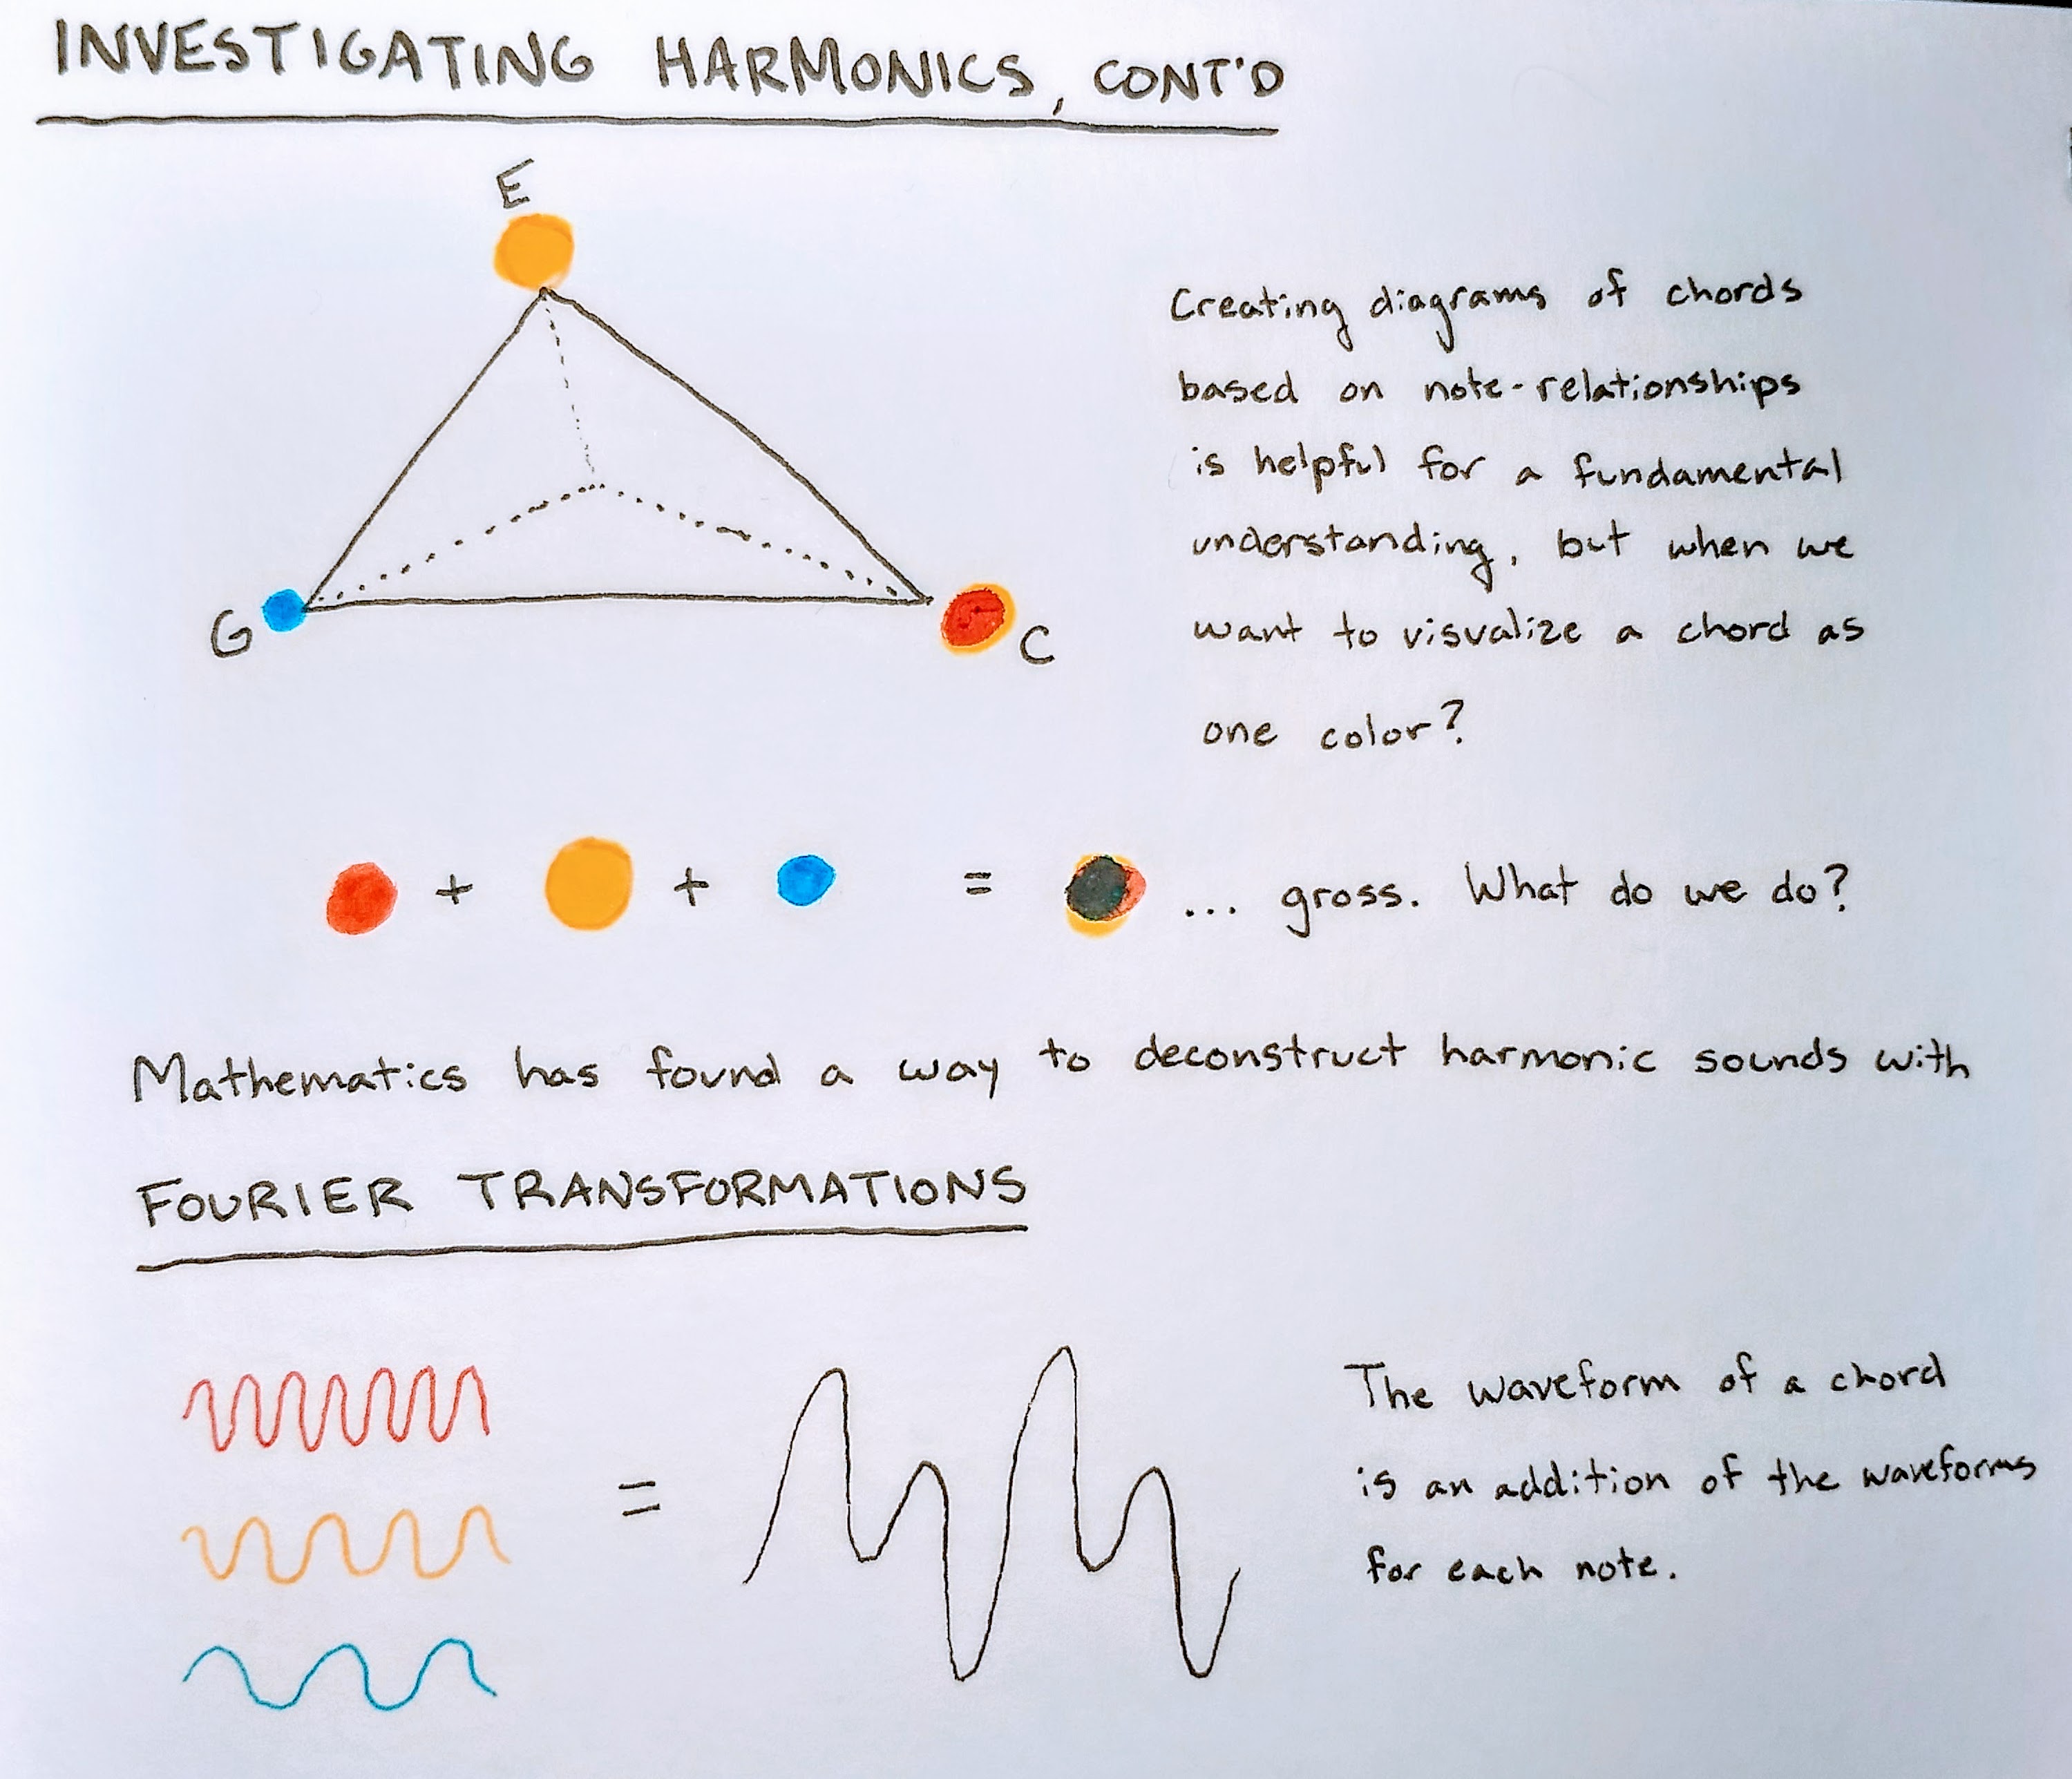 INVESTIGATING HARMONICS, CONT'D
E
G
C
Creating diagrams of chords
based on note-relationships
is helpful for a fundamental
understanding, but when we
want to visualize a chord as
one color?
+ + = ... gross. What do we do?
Mathematics has found a way to deconstruct harmonic sounds with
FOURIER TRANSFORMATIONS
=
The waveform of a chord
is an addition of the waveforms
for each note.